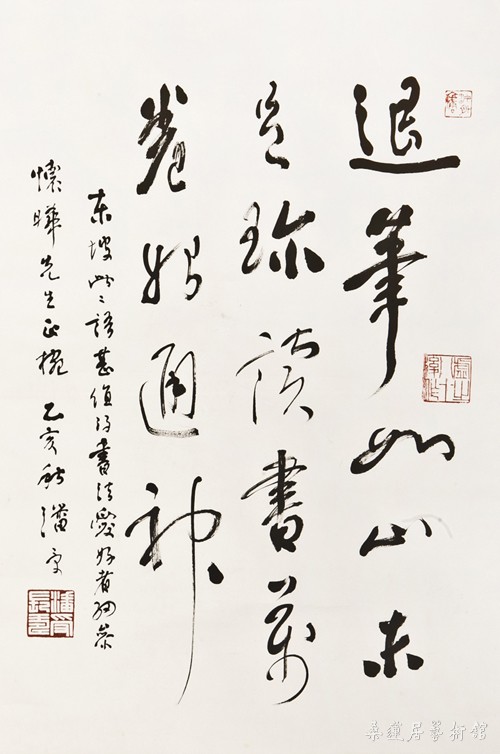 退筆如山未
足珍讀書萬
卷始通神
東坡此二語甚值得書法愛好者細參
懷曄先生正腕 乙亥秋潘受
蓮居藝術館